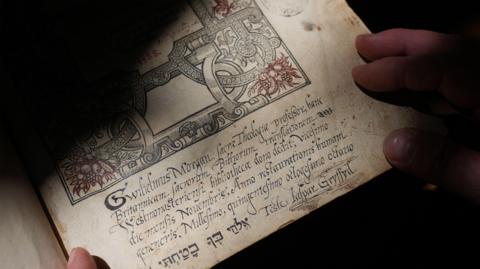 Gulielmus Morgan, sacræ Theologiæ professor, hanc
Britannicam, sacrorum Bibliorum translationem
Westmonasteriensi bibliothecæ dono dedit. Vicesimo
die mensis Novembris. Anno restaurationis humani
generis. Millesimo, quingentesimo octogesimo octavo
Teste Gaspar Gryffyd.
אלהי בך בטחתי